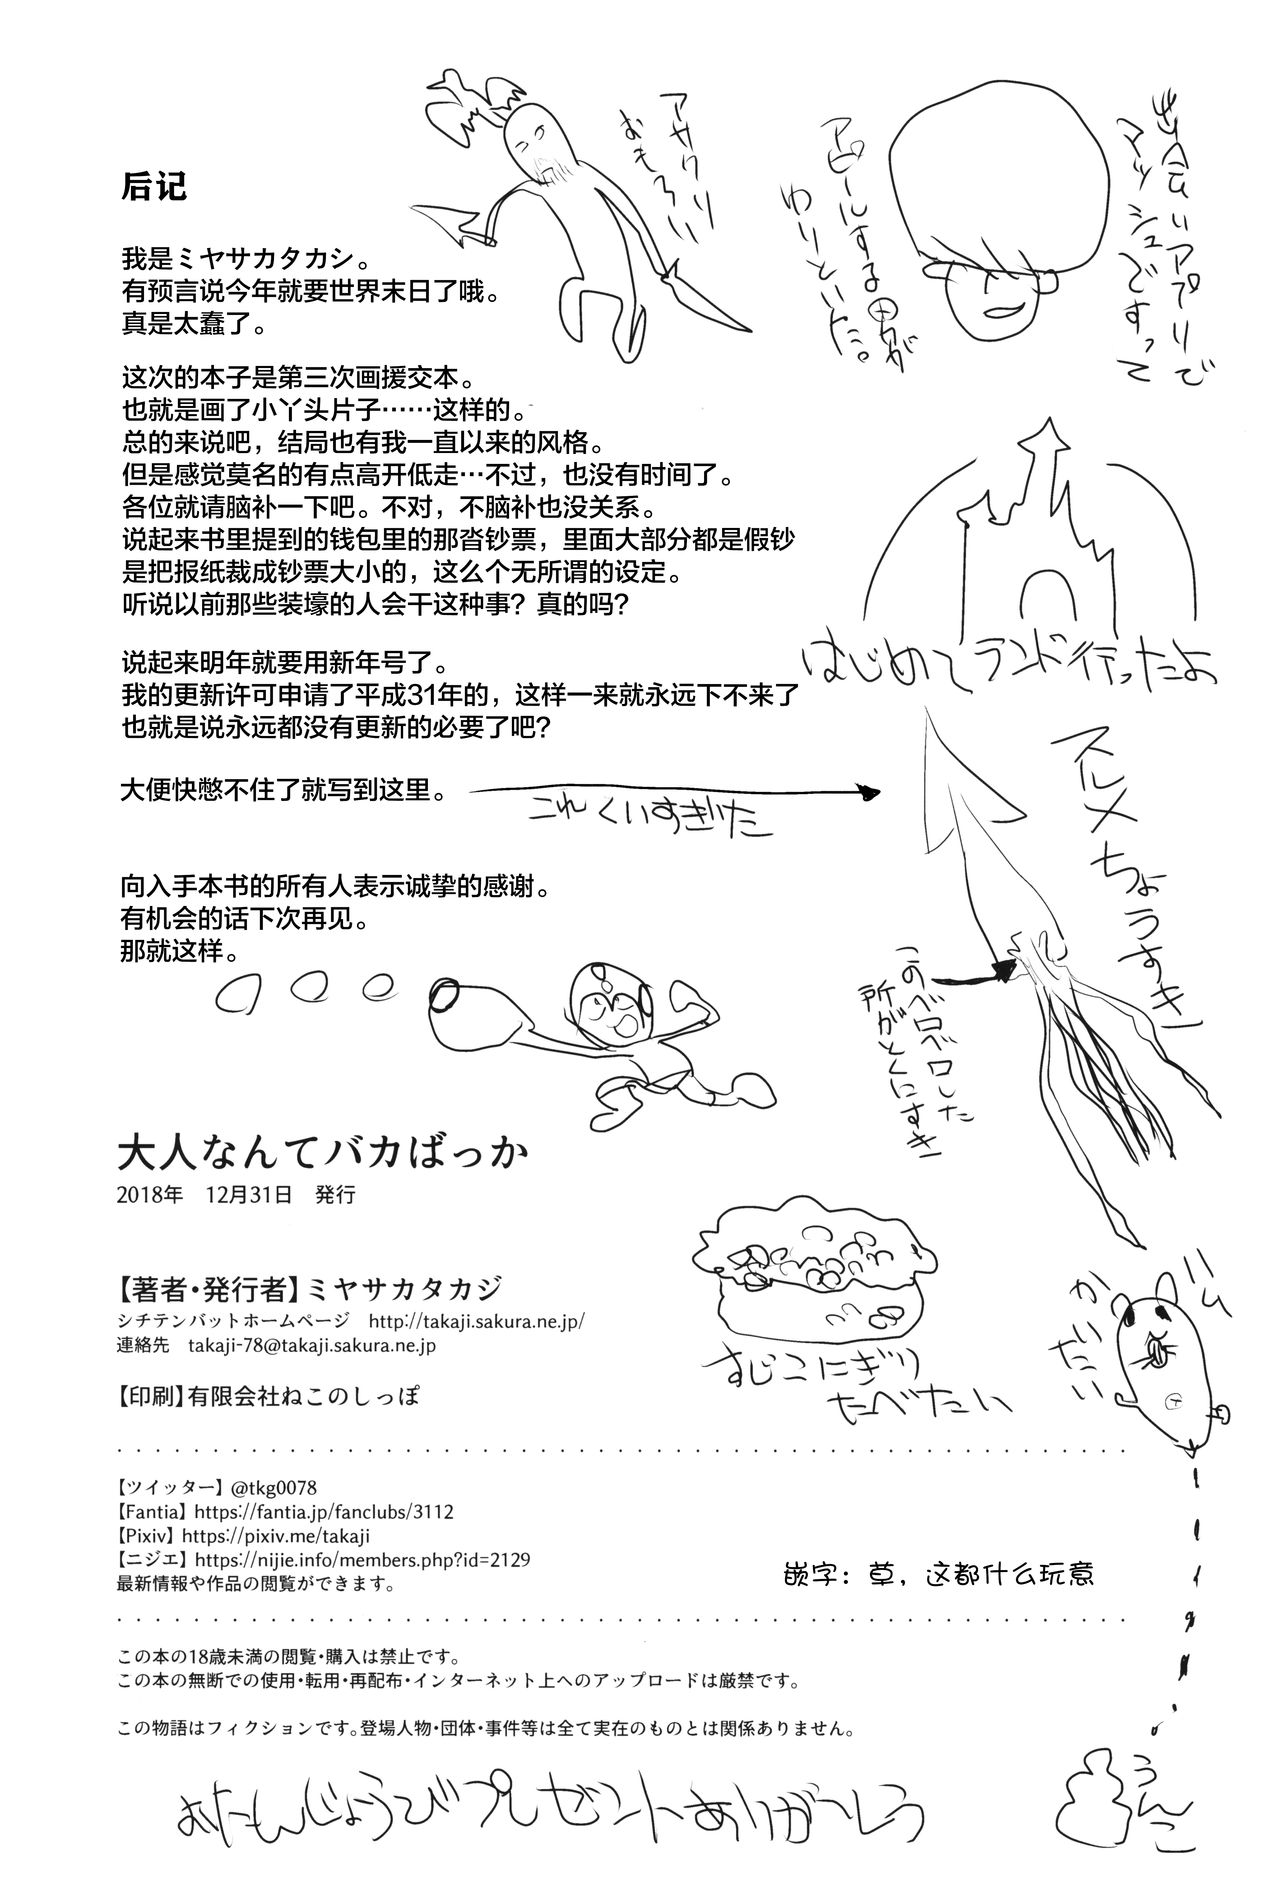 后记
我是ミヤサカタカシ。
有预言说今年就要世界末日了哦。
真是太蠢了。
这次的本子是第三次画援交本。
也就是画了小丫头片子……这样的。
总的来说吧，结局也有我一直以来的风格。
但是感觉莫名的有点高开低走…不过，也没有时间了。
各位就请脑补一下吧。不对，不脑补也没关系。
说起来书里提到的钱包里的那沓钞票，里面大部分都是假钞
是把报纸裁成钞票大小的，这么个无所谓的设定。
听说以前那些装壕的人会干这种事？真的吗？
说起来明年就要用新年号了。
我的更新许可申请了平成31年的，这样一来就永远下不来了
也就是说永远都没有更新的必要了吧？
大便快憋不住了就写到这里。
これくいすぎた
向入手本书的所有人表示诚挚的感谢。
有机会的话下次再见。
那就这样。
アサクリ
おもろい
出会いアプリで
マッシュですって
アピールする男が
ゆりといた。
はじめてランド行ったよ
スルメちょうすき
このベロベロした
所がとくにすき
すじこにぎり
たべたい
ハム
かいたい
大人なんてバカばっか
2018年　12月31日　発行
【著者・発行者】ミヤサカタカジ
シチテンバットホームページ　http://takaji.sakura.ne.jp/
連絡先　takaji-78@takaji.sakura.ne.jp
【印刷】有限会社ねこのしっぽ
【ツイッター】@tkg0078
【Fantia】https://fantia.jp/fanclubs/3112
【Pixiv】https://pixiv.me/takaji
【ニジエ】https://nijie.info/members.php?id=2129
最新情報や作品の閲覧ができます。
嵌字：草，这都什么玩意
この本の18歳未満の閲覧・購入は禁止です。
この本の無断での使用・転用・再配布・インターネット上へのアップロードは厳禁です。
この物語はフィクションです。登場人物・団体・事件等は全て実在のものとは関係ありません。
おたんじょうびプレゼントありがとう
うんこ